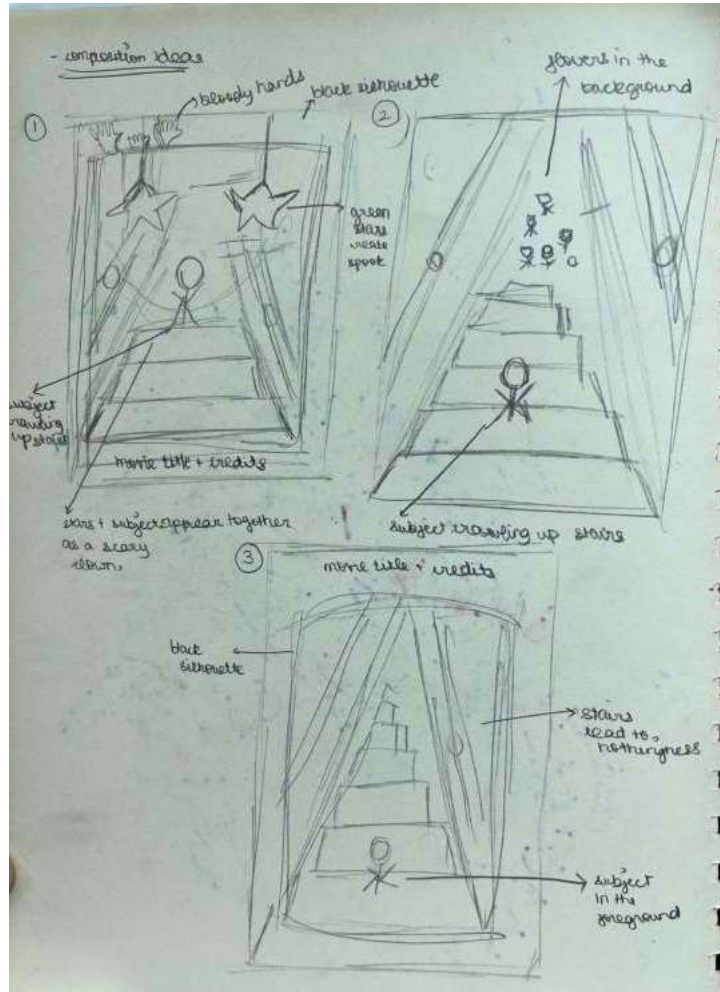 - composition ideas
bloody hands
black silhouette
flowers in the
background
1
2
green
stars
create
spook
subject
crawling
up stairs
movie title + credits
stars + subject appear together
as a scary
clown,
subject crawling up stairs
3
movie title + credits
black
silhouette
stairs
lead to,
nothingness
subject
in the
foreground